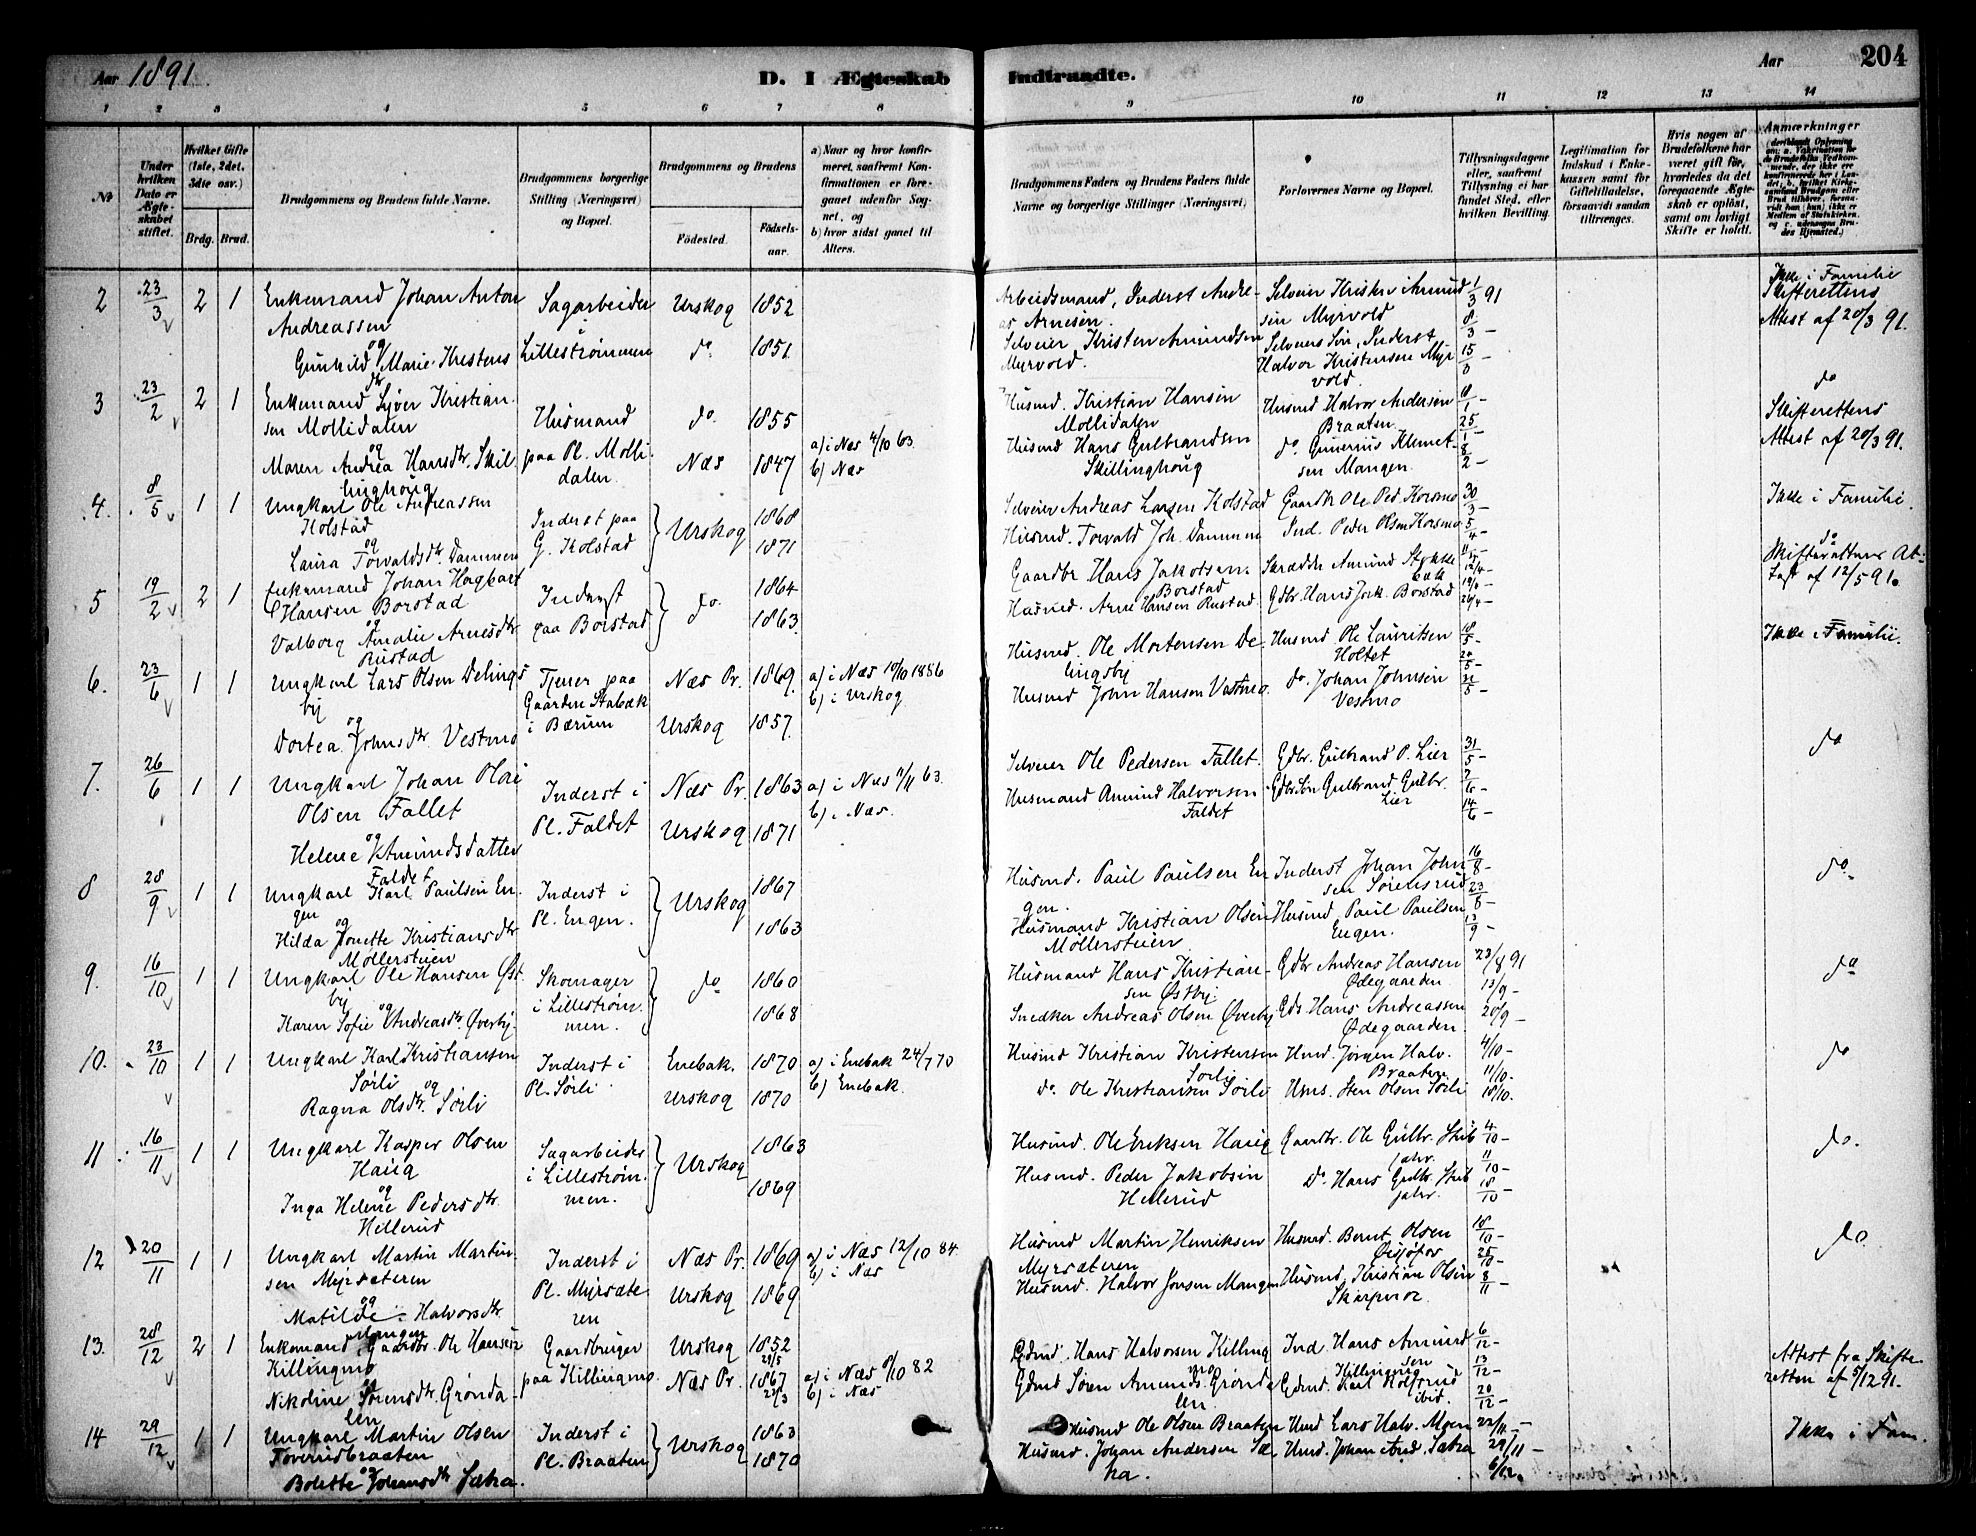 Aar 1891.
D. I Ægteskab Indtraadte.
Aar 204
1 2 3 4 5 6 7 8 9 10 11 12 13 14
No
Under hvilken Dato er Ægteskabet stiftet.
Hvilket Gifte (1ste, 2det, 3die osv.)
Brdg. Brud.
Brudgommens og Brudens fulde Navne.
Brudgommens borgerlige Stilling (Næringsvei) og Bopæl.
Brudgommens og Brudens
Fødested. Fødselsaar.
a) Naar og hvor konfirmeret, saafremt Konfirmationen er foregaaet udenfor Sognet, og
b) hvor sidst gaaet til Alters.
Brudgommens Faders og Brudens Faders fulde Navne og borgerlige Stillinger (Næringsvei)
Forlovernes Navne og Bopæl.
Tillysningsdagene eller, saafremt Tillysning ei har fundet Sted, efter hvilken Bevilling.
Legitimation for Indskud i Enkekassen samt for Giftetilladelse, forsaavidt saadan tiltrænges.
Hvis nogen af Brudefolkene har været gift før, hvorledes da det foregaaende Ægteskab er opløst, samt om lovligt Skifte er holdt.
Anmærkninger
2 23/3 2 1 Enkemand Johan Anton Andreassen
og
Gunhild Marie Kristensdtr
Sagarbeider i Lillestrømmen
Urskog 1852
do 1851
Arbeidsmand, Inderst Andreas Arnesen.
Selveier Kristen Amundsen Myrvold.
Selveier Kristen Amundsen Myrvold
Selveiers Søn, Inderst Halvor Kristensen Myrvold.
1/3 91
8/3 -
15/3 -
Ikke i Familie
Skifterettens Attest af 20/3 91.
3 23/2 2 1 Enkemand Syver Kristiansen Mollidalen
og
Maren Andrea Hansdtr. Skillinghoug
Husmand paa Pl. Mollidalen.
do. 1855
Næs 1847
a) i Næs 4/10 63
b) Næs
Husmd. Kristian Hansen Mollidalen
Husmd Hans Gulbrandsen Skillinghoug
Husmd Halvor Andersen Braaten
do. Gunerius Klemetsen Mangen.
18/1 -
25/1
8/2 -
do
Skifterettens Attest af 20/3 91.
4. 8/5 1 1 Ungkarl Ole Andreassen Kolstad
og
Laura Torvaldsdtr Dammen
Inderst paa G. Kolstad
Urskog 1868
1871
Selveier Andreas Larsen Kolstad
Husmd. Torvald Joh. Dammen
Gaardbr Ole Ped. Korsmo
Ind. Peder Olsen Korsmo
30/3 -
5/4 -
Ikke i Familie.
5 19/2 2 1 Enkemand Johan Hagbart Hansen Borstad
og
Valborg Amalie Arnesdtr Rustad
Inderst paa Borstad
do. 1864
1863.
Gaardbr Hans Jakobsen Borstad
Husmd. Arne Hansen Rustad.
Skrædder Amund Stykkebæk
Gdbr. Hans Jak. Borstad
12/4 -
19/4 -
26/4 -
do
Skifterettens Attest af 12/5 91.
6. 23/6 1 1 Ungkarl Lars Olsen Delingsby
og
Dortea Johnsdtr. Vestmo
Tjener paa Gaarden Stabæk i Bærum
Næs Pr. 1869.
Urskog 1857.
a) i Næs 10/10 1886
b) i Urskog
Husmd. Ole Mortensen Delingsby
Husmd John Hansen Vestmo.
Husmd Ole Lauritsen Holtet
do. Johan Johnsen Vestmo
18/5 -
Ikke i Familie.
7. 26/6 1 1 Ungkarl Johan Olai Olsen Fallet
og
Helene Amundsdatter Faldet
Inderst i Pl. Faldet
Næs Pr. 1863
Urskog 1871
a) i Næs 63.
b) i Næs.
Selveier Ole Pedersen Fallet.
Husmand Amund Halvorsen Faldet
Gdbr. Gulbrand P. Lier
Gdbr. Søn Gulbrand Gulbr. Lier
31/5 -
7/6 -
14/6 -
do
8 28/9 1 1 Ungkarl Karl Paulsen Engen
og
Hilda Jonette Kristiansdtr Møllerstuen
Inderst i Pl. Engen.
Urskog 1867
1863
Husmd. Paul Paulsen Engen.
Husmand Kristian Olsen Møllerstuen
Inderst Johan Johnsen Sørensrud
Husmd Paul Paulsen Engen.
16/8 -
23/8 -
13/9 -
do.
9. 16/10 1 1 Ungkarl Ole Hansen Østby
og
Karen Sofie Andreasdtr. Øverby.
Skomager i Lillestrømmen.
do 1860
1868
Husmand Hans Kristiansen Østby.
Snedker Andreas Olsen Øverby
Gdbr Andreas Hansen Ødegaarden
Gds. Hans Andreassen Ødegaarden.
23/8 91
13/9 -
20/9 -
do
10. 23/10 1 1 Ungkarl Karl Kristiansen Sørli
og
Ragna Olsdtr. Sørli
Inderst i Pl. Sørli
Enebak. 1870
Urskog 1870
a) i Enebak 24/7 70
b) Enebak.
Husmd Kristian Kristensen Sørli
do. Ole Kristiansen Sørli
Husmd. Jørgen Halv. Braaten.
Hms. Sten Olsen Sørli
4/10 -
11/10 -
18/10.
do
11 16/11 1 1 Ungkarl Kasper Olsen Haug
og
Inga Helene Pedersdtr. Hellerud
Sagarbeider i Lillestrømmen.
Urskog 1863
1869
Husmd. Ole Eriksen Haug
Husmd. Peder Jakobsen Hellerud
Gaardbr. Ole Gulbr.
Do. Hans Gulbr.
4/10 -
11/10 -
18/10 -
do.
12 20/11 1 1 Ungkarl Martin Martinsen Myrsæteren
og
Matilde Halvorsdtr. Mangen
Inderst i Pl. Myrsæteren
Næs Pr. 1869
Urskog 1869
a) i Næs 12/10 84.
b) i Næs
Husmd Martin Henriksen Myrsæteren
Husmd. Halvor Jonsen Mangen
Husmd. Bernt Olsen
Husmd Kristian Olsen Skarpnor
18/10 -
25/10 -
8/11 -
do
13. 28/12 2 1 Enkemand Gaardbr. Ole Hansen Killingmo
og
Nikoline Sørensdtr. Grøndalen
Gaardbruger paa Killingmo.
Urskog 1852 29/5
Næs Pr. 1867 22/3
a) i Næs 8/10 82
b) i Næs
Gdmd. Hans Halvorsen Killingmo
Gdmd Søren Amunds. Grøndalen
Ind. Hans Amundsen Killingmo
Gdmd. Karl Kolfsrud ibid.
6/12 -
13/12 -
20/12 -
Attest fra Skifteretten af 5/12 91.
14 29/12 1 1 Ungkarl Martin Olsen Toverudbraaten
og
Bolette Johansdtr Sætra.
Inderst i Pl. Braaten
Urskog 1863
1870
Husmd Ole Olsen Braaten
Husmd. Johan Andersen Sætra.
Hmd Lars Halv. Moen
Hmd. Johan And. Sætra
22/11 -
29/11 -
6/12.
Ikke i Fam.